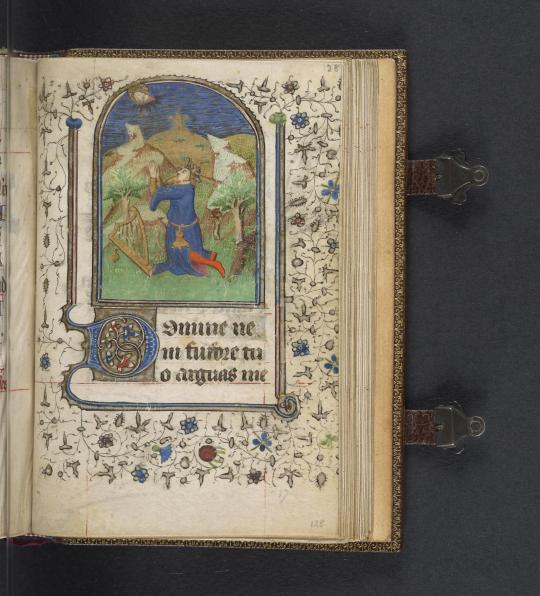 128
Domine ne
in furore tu
o arguas me
128